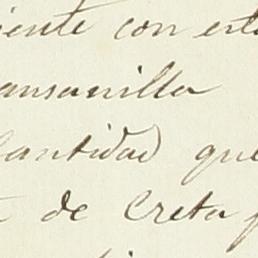 iente con est
ansanilla
antidad que
de Creta